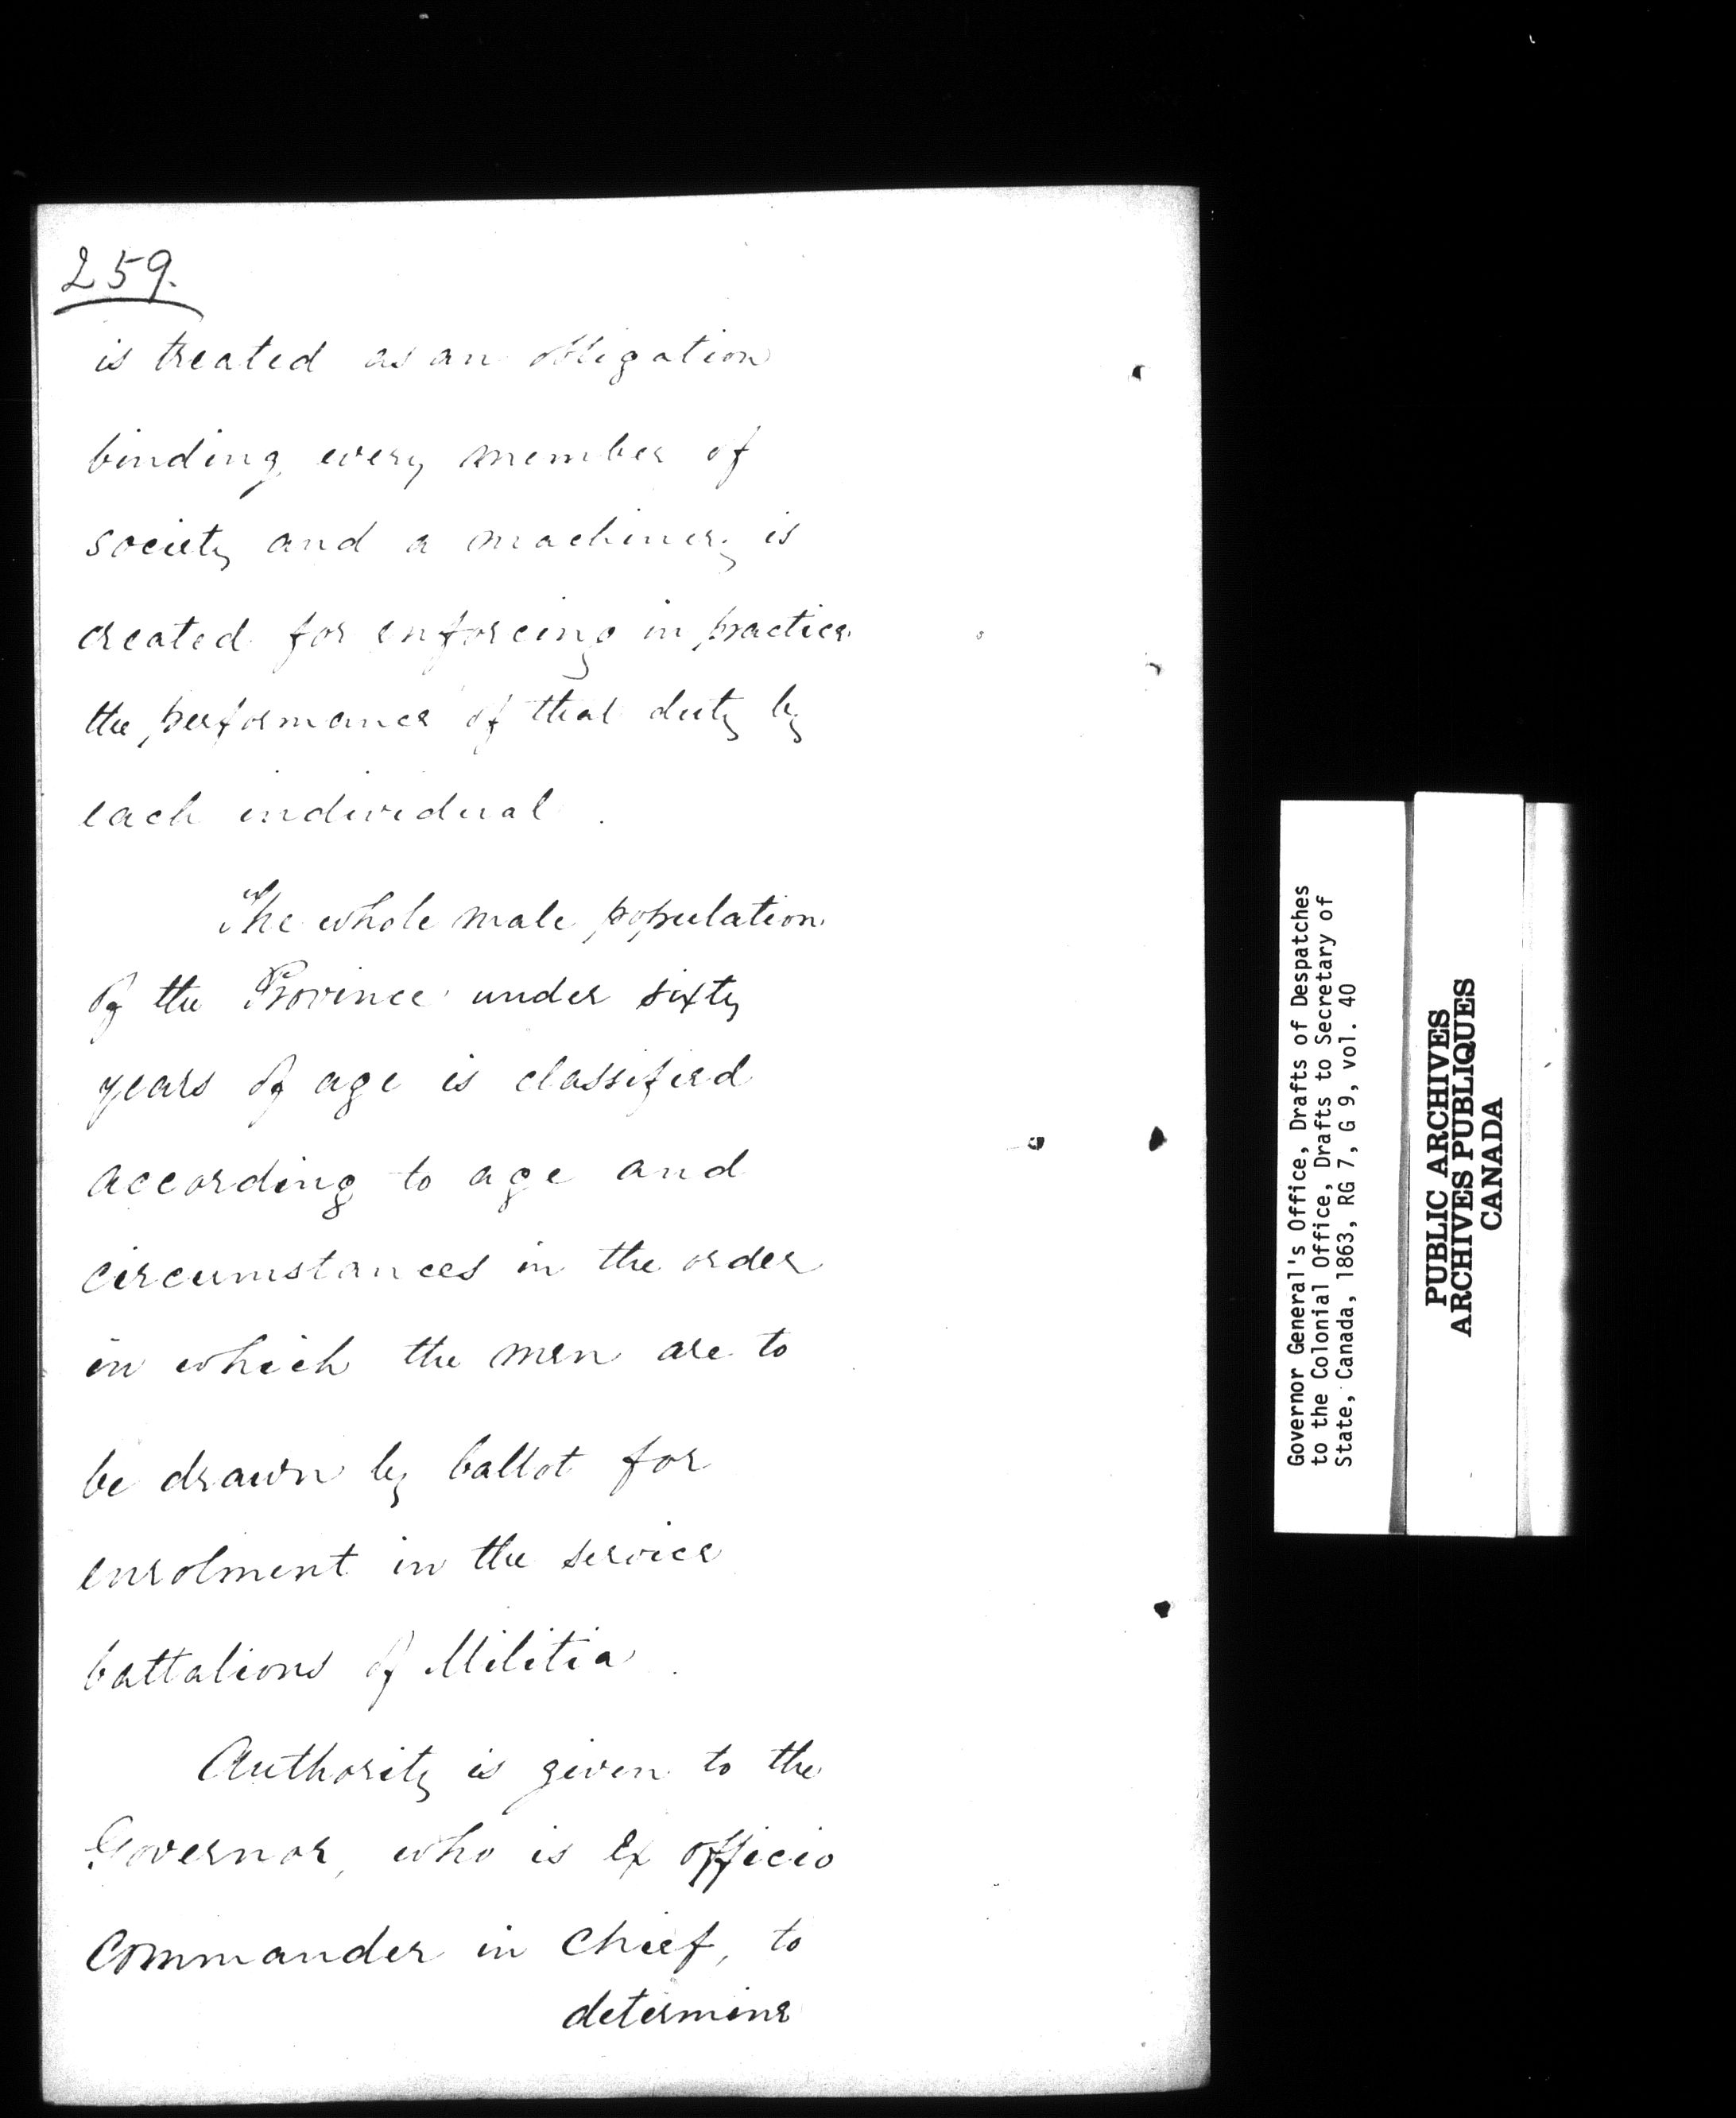 259.
is treated as an obligation
binding every member of
society and a machinery is
created for enforcing in practice
the performance of that duty by
each individual.
The whole male population
of the Province under sixty
years of age is classified
according to age and
circumstances in the order
in which the men are to
be drawn by ballot for
enrolment in the service
battalions of Militia.
Authority is given to the
Governor, who is Ex officio
Commander in Chief, to
determine
Governor General's Office, Drafts of Despatches
to the Colonial Office, Drafts to Secretary of
State, Canada, 1863, RG 7, G 9, vol. 40
PUBLIC ARCHIVES
ARCHIVES PUBLIQUES
CANADA